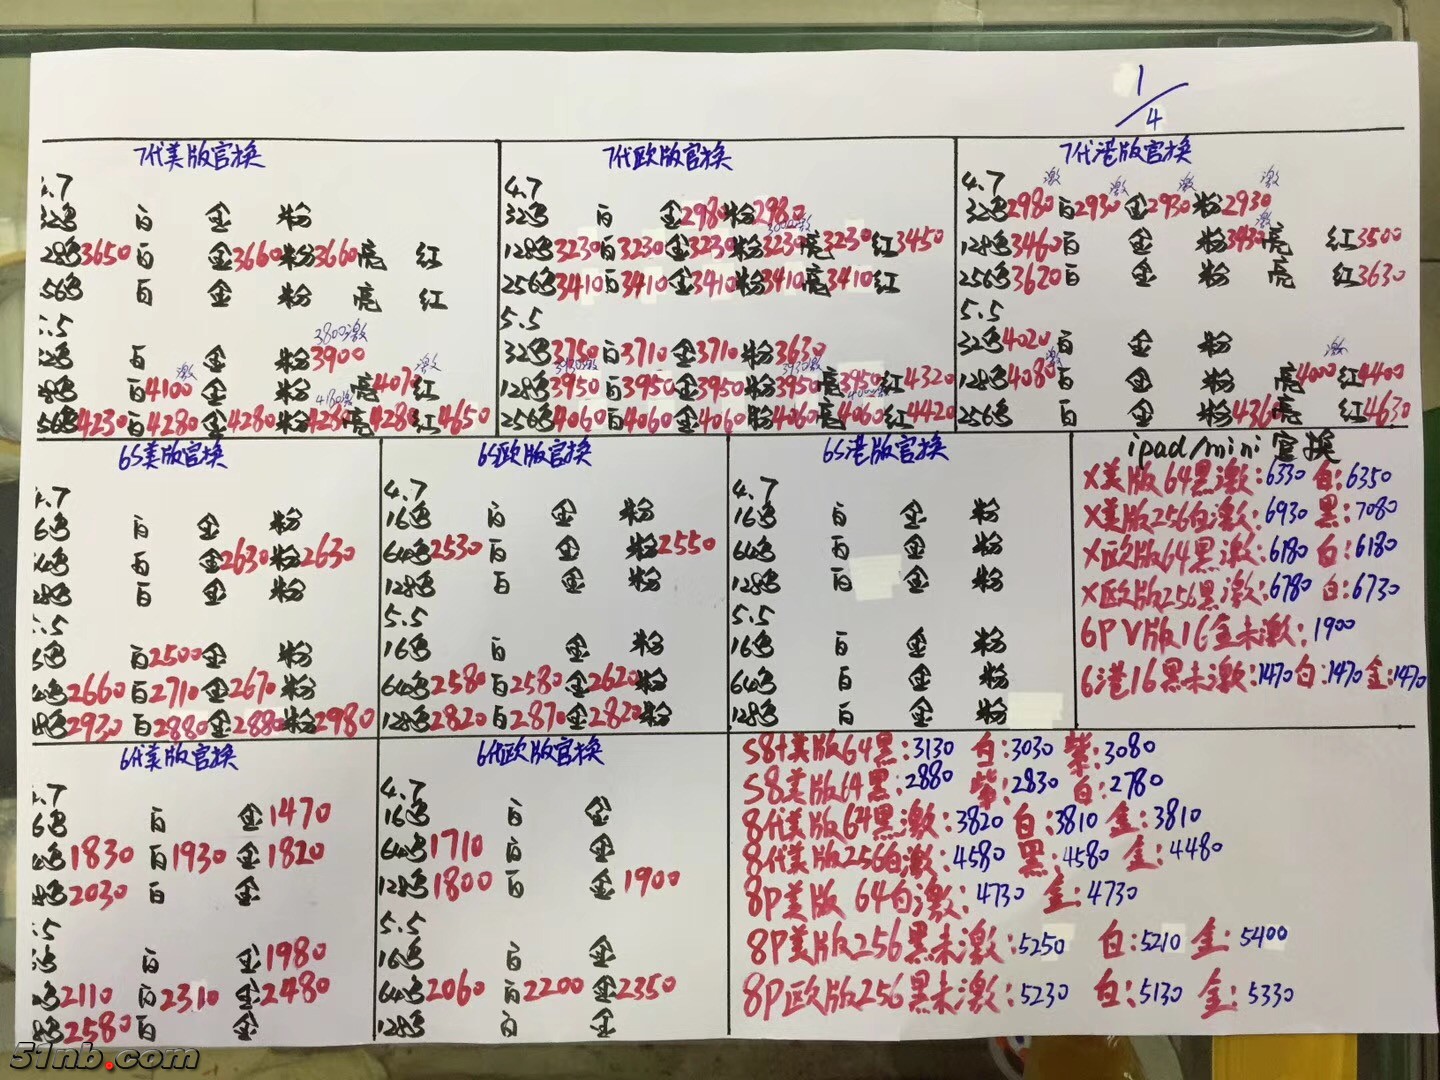 1/4
7代美版官换
.7
32黑 白 金 粉
28黑3650白 金3660粉3660亮 红
256黑 白 金 粉 亮 红
5.5
3800激
32黑 白 金 粉3900
激 激
28黑 白4100金 粉 亮4070红
4180激
256黑4230白4280金4280粉4280亮4280红4650
7代欧版官换
4.7
32黑 白 金2980粉2980
128黑3230白3230金3230粉3230亮3230红3450
256黑3410白3410金3410粉3410亮3410红
5.5
32黑3750白3710金3710粉3630
128黑3950白3950金3950粉3950亮3950红4320
256黑4060白4060金4060粉4060亮4060红4420
7代港版官换
4.7
激 激 激 激
32黑2980白2930金2930粉2930
激
128黑3460白 金 粉3430亮 红3500
256黑3620白 金 粉 亮 红3630
5.5
32黑4020白 金 粉
激 激
128黑4080白 金 粉 亮4000红4400
256黑 白 金 粉436亮 红4630
6S美版官换
.7
6黑 白 金 粉
64黑 白 金2630粉2630
28黑 白 金 粉
.5
6黑 白2500金 粉
64黑2660白2710金2670粉
28黑2930白2880金2880粉2980
6S欧版官换
4.7
16黑 白 金 粉
64黑2530白 金 粉2550
128黑 白 金 粉
5.5
16黑 白 金 粉
64黑2580白2580金2620粉
128黑2820白2870金2820粉
6S港版官换
4.7
16黑 白 金 粉
64黑 白 金 粉
128黑 白 金 粉
5.5
16黑 白 金 粉
64黑 白 金 粉
128黑 白 金 粉
ipad/mini官换
X美版64黑激:6330 白:6350
X美版256白激:6930 黑:7080
X欧版64黑激:6180 白:6180
X欧版256黑激:6780 白:6730
6PV版16金未激:1900
6港16黑未激:1470白:1470金:1470
6代美版官换
.7
6黑 白 金1470
64黑1830白1930金1820
28黑2030白 金
.5
6黑 白 金1980
64黑2110白2310金2480
28黑2580白 金
6代欧版官换
4.7
16黑 白 金
64黑1710白 金
128黑1800白 金1900
5.5
16黑 白 金
64黑2060白2200金2350
128黑 白 金
S8+美版64黑:3130 白:3030 紫:3080
S8美版64黑:2880 紫:2830 白:2780
8代美版64黑激:3820 白:3810 金:3810
8代美版256白激:4580 黑:4580 金:4480
8P美版 64白激:4730 金:4730
8P美版256黑未激:5250 白:5210 金:5400
8P欧版256黑未激:5230 白:5130 金:5330
51nb.com